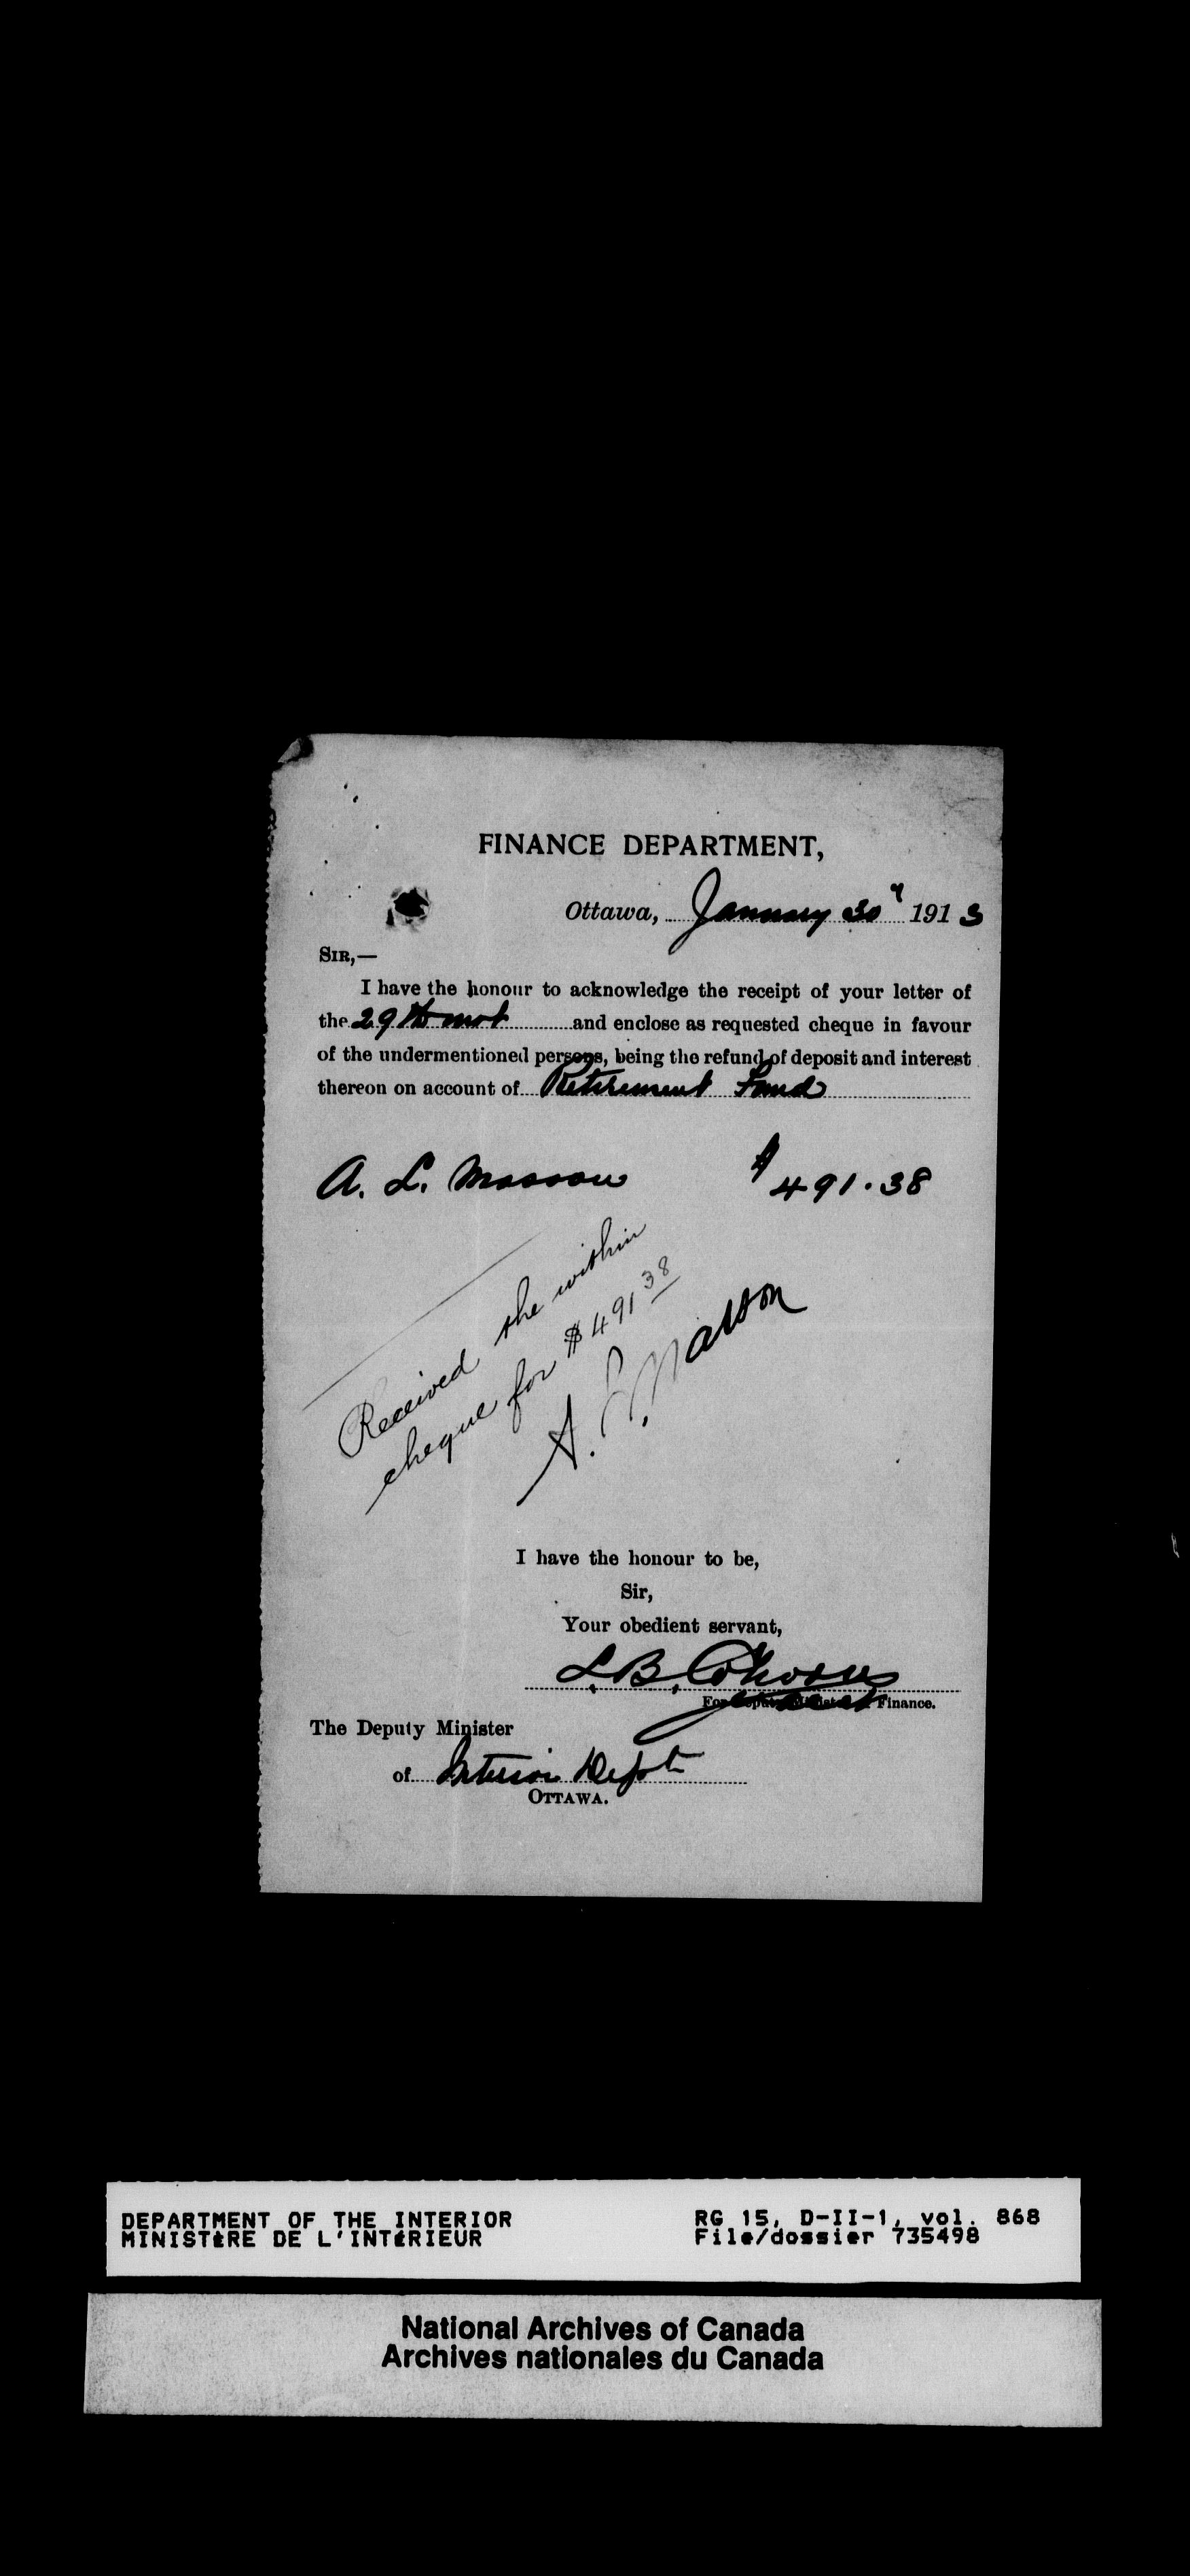 FINANCE DEPARTMENT,
Ottawa, January 30 1913
SIR,—
I have the honour to acknowledge the receipt of your letter of
the 29th inst and enclose as requested cheque in favour
of the undermentioned persons, being the refund of deposit and interest
thereon on account of Retirement Fund
A. L. Masson $491.38
Received the within
cheque for $491 38
A. L. Masson
I have the honour to be,
Sir,
Your obedient servant,
L. B.
For Deputy Minister Finance.
The Deputy Minister
of Interior Dept
OTTAWA.
DEPARTMENT OF THE INTERIOR RG 15, D-II-1, vol. 868
MINISTÈRE DE L'INTÉRIEUR File/dossier 735498
National Archives of Canada
Archives nationales du Canada